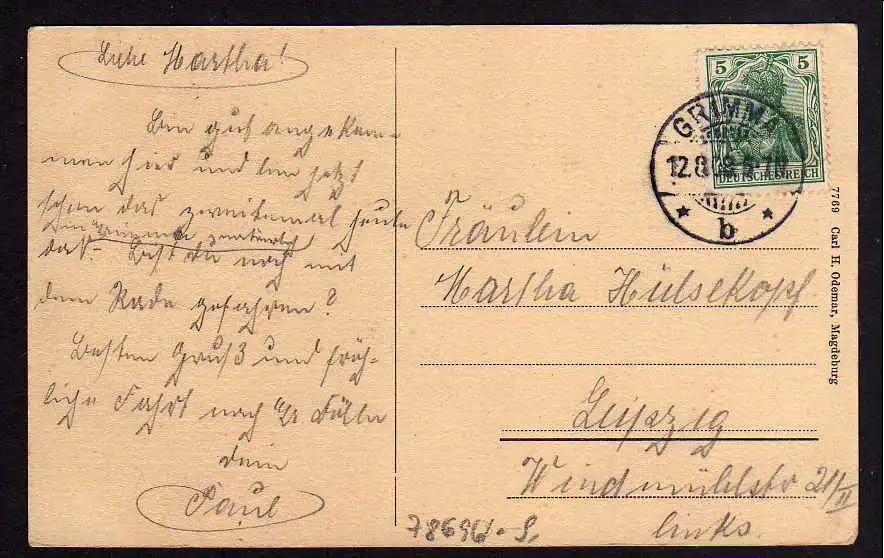 Liebe Martha!
Bin gut angekom-
men hier und bin jetzt
schon das zweitemal heute
Bin
natürlich
das. Bist du noch mit
dem Rade gefahren?
Besten Gruß und fröh-
liche Fahrt nach
dein
Paul
5 5
DEUTSCHES REICH
GRIMMA
12.8
b
Fräulein
Martha Hülsekopf
Leipzig
Windmühlstr 21/II
links.
7769 Carl H. Odemar, Magdeburg